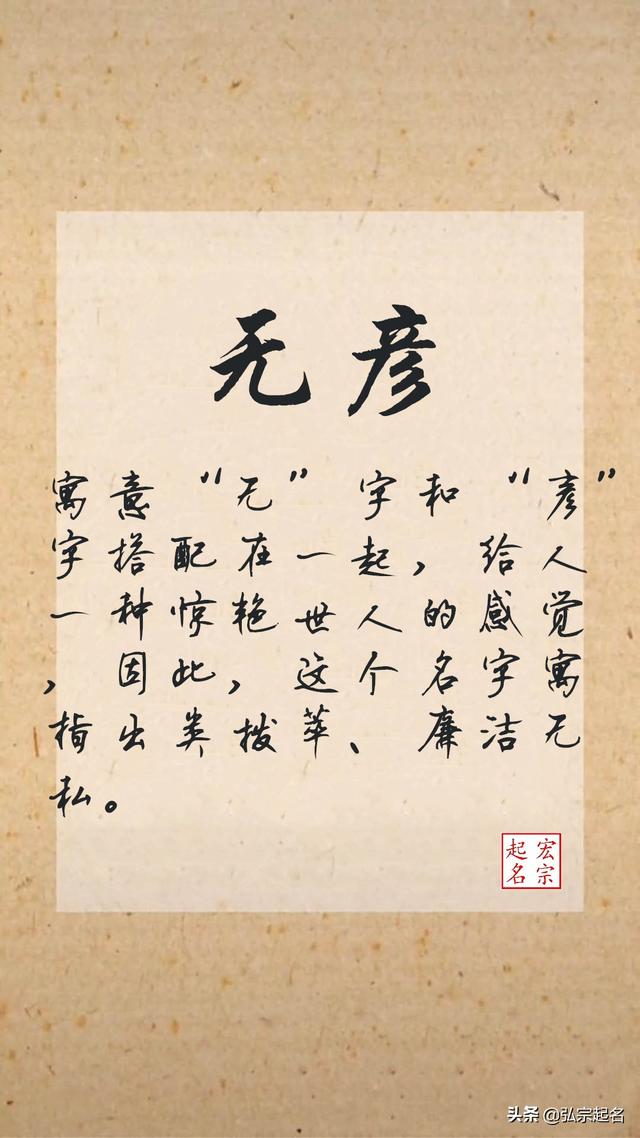 无彦
寓意“无”字和“彦”
字搭配在一起，给人
一种惊艳世人的感觉
，因此，这个名字寓
指出类拔萃、廉洁无
私。
宏宗
起名
头条 @弘宗起名